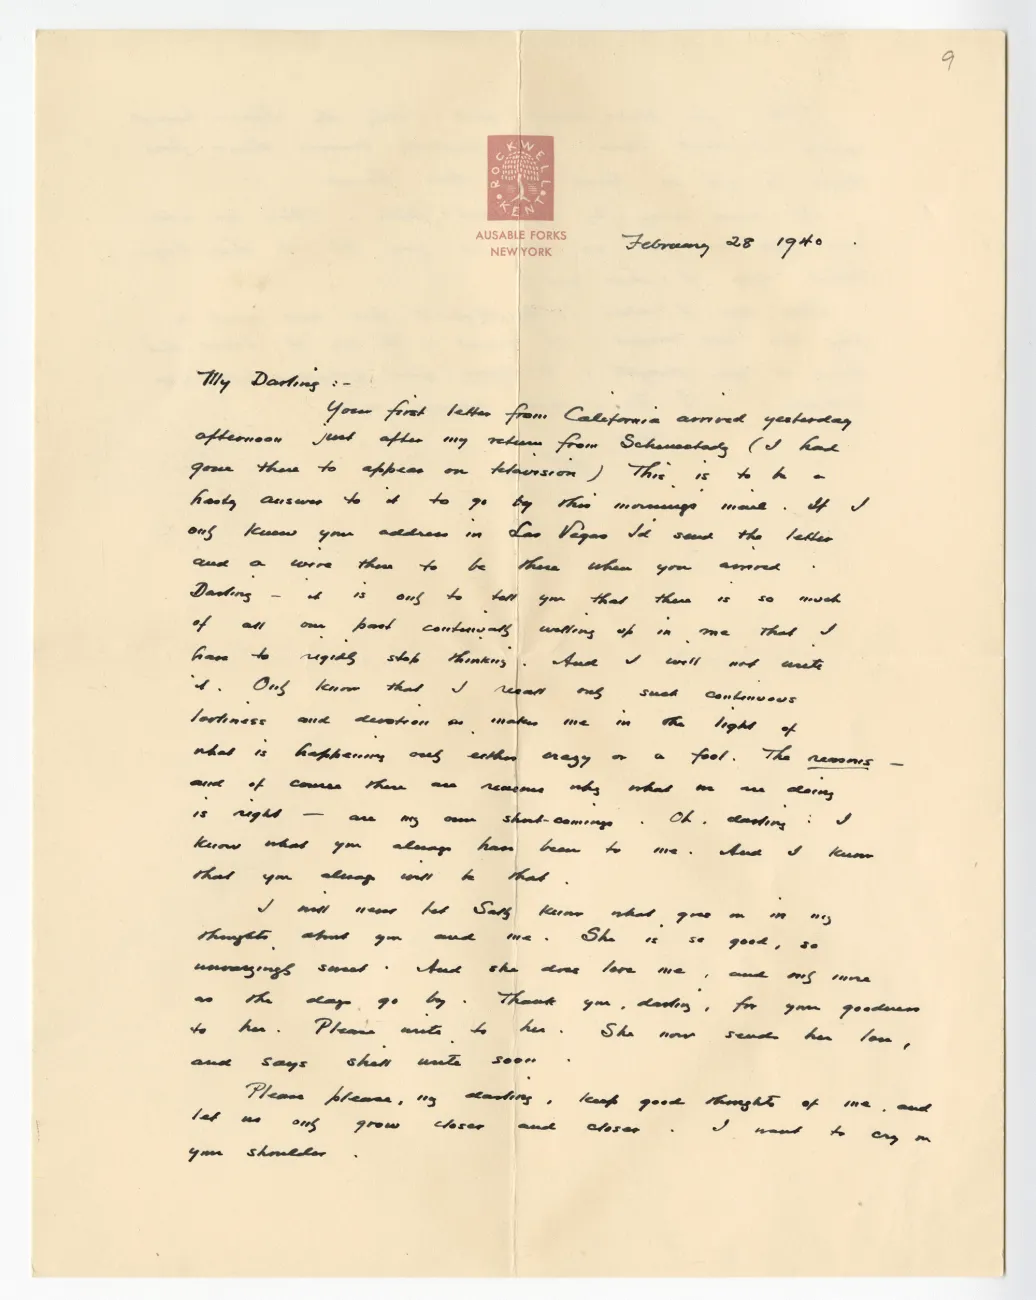 9
ROCKWELL KENT
AUSABLE FORKS
NEW YORK
February 28 1940.
My Darling :-
Your first letter from California arrived yesterday
afternoon just after my return from Schenectady (I had
gone there to appear on television) This is to be a
hasty answer to it to go by this morning's mail. If I
only knew your address in Las Vegas I'd send the letter
and a wire there to be there when you arrived.
Darling - it is only to tell you that there is so much
of all our past continually welling up in me that I
have to rigidly stop thinking. And I will not write
it. Only know that I recall only such continuous
loveliness and devotion as makes me in the light of
what is happening only either crazy or a fool. The reasons -
and of course there are reasons why what we are doing
is right - are my own short-comings. Oh, darling: I
know what you always have been to me. And I know
that you always will be that.
I will never let Sally know what goes on in my
thoughts about you and me. She is so good, so
unvaryingly sweet. And she does love me, and only more
as the days go by. Thank you, darling, for your goodness
to her. Please write to her. She now sends her love,
and says she'll write soon.
Please please, my darling, keep good thoughts of me, and
let us only grow closer and closer. I want to cry on
your shoulder.